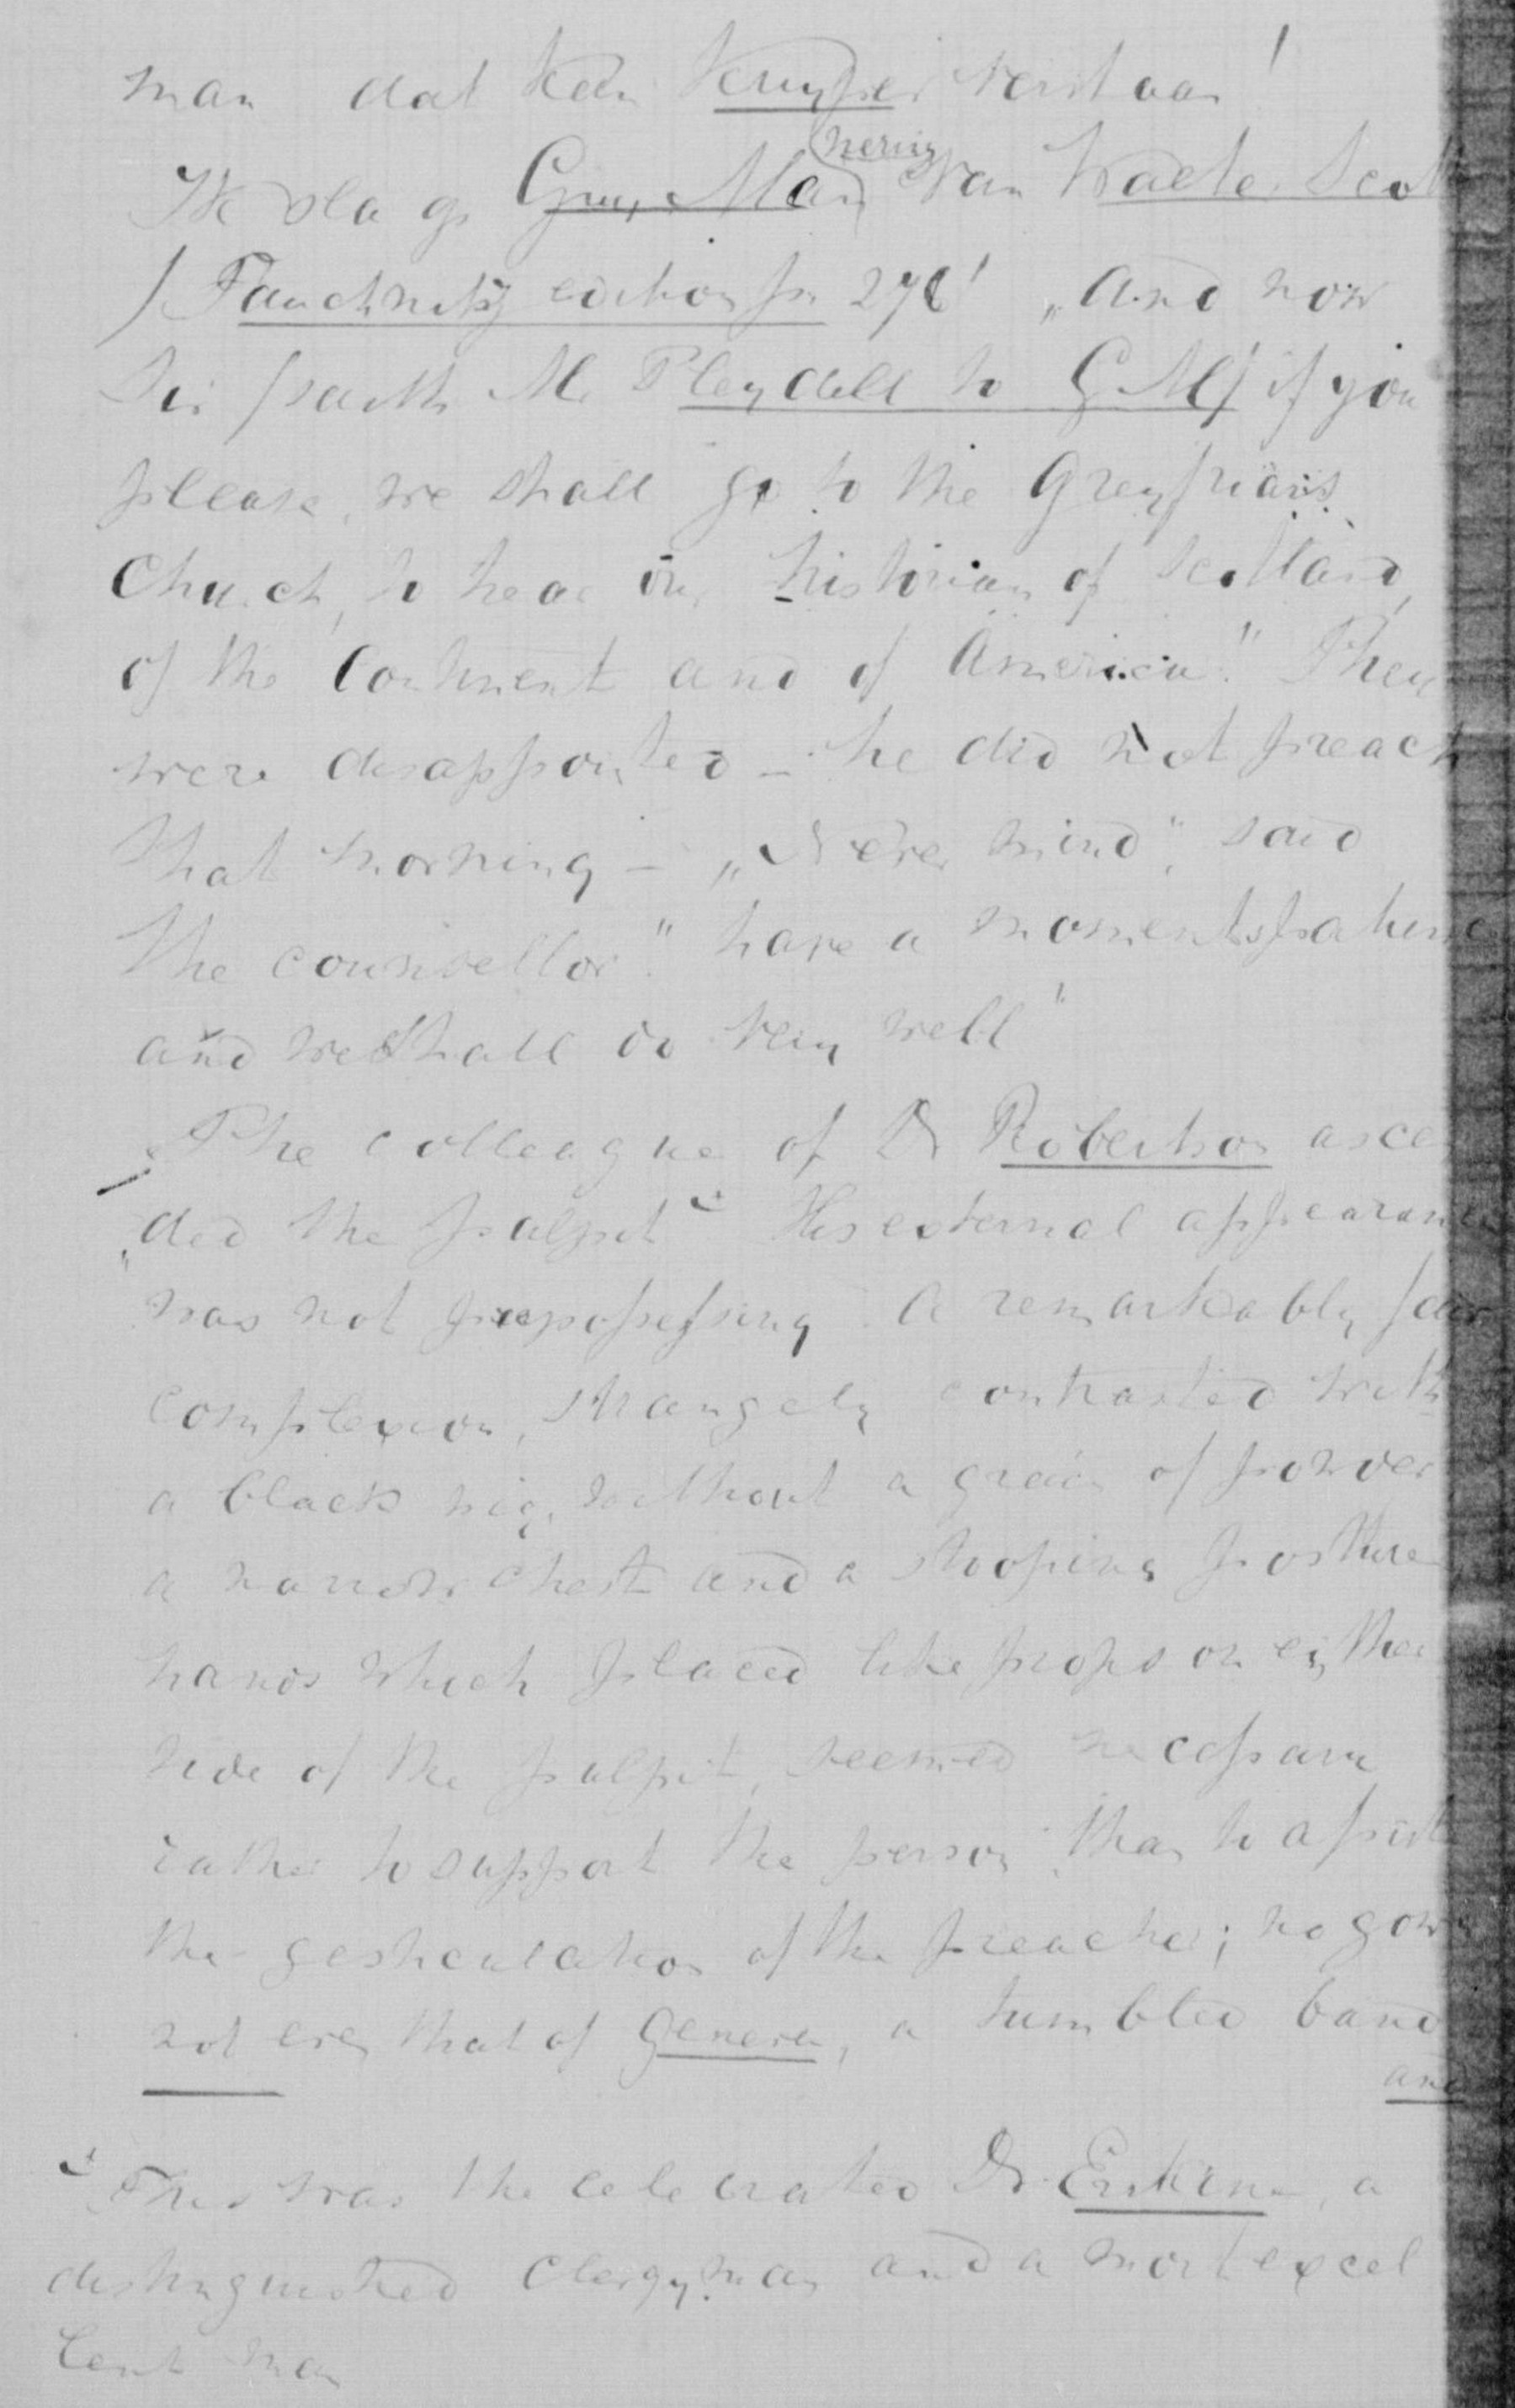 man dat kan Kuyper verstaan!
Ik sla op Guy Mannering van Walter Scott
(Tauchnitz edition p. 276) „And now
Sir (saith Mr Pleydell to G M) if you
please, we shall go to the Greyfriars
Church, to hear our historian of Scotland,
of the Continent and of America." They
were disappointed – he did not preach
that morning – „Never mind", said
the counsellor" have a moments patience
and we shall do very well"
„The colleague of Dr Robertson ascen
ded the pulpit His external appearance
was not prepossessing. A remarkably fair
complexion, strangely contrasted with
a black wig, without a grain of powder
a narrow chest and a stooping posture
hands which placed like props on either
side of the pulpit, seemed necessary
rather to support the person than to assist
the gesticulation of the preacher; no gown
not even that of Geneva, a tumbled band
and
This was the celebrated Dr Erskine, a
distinguished clergyman and a most excel
lent man